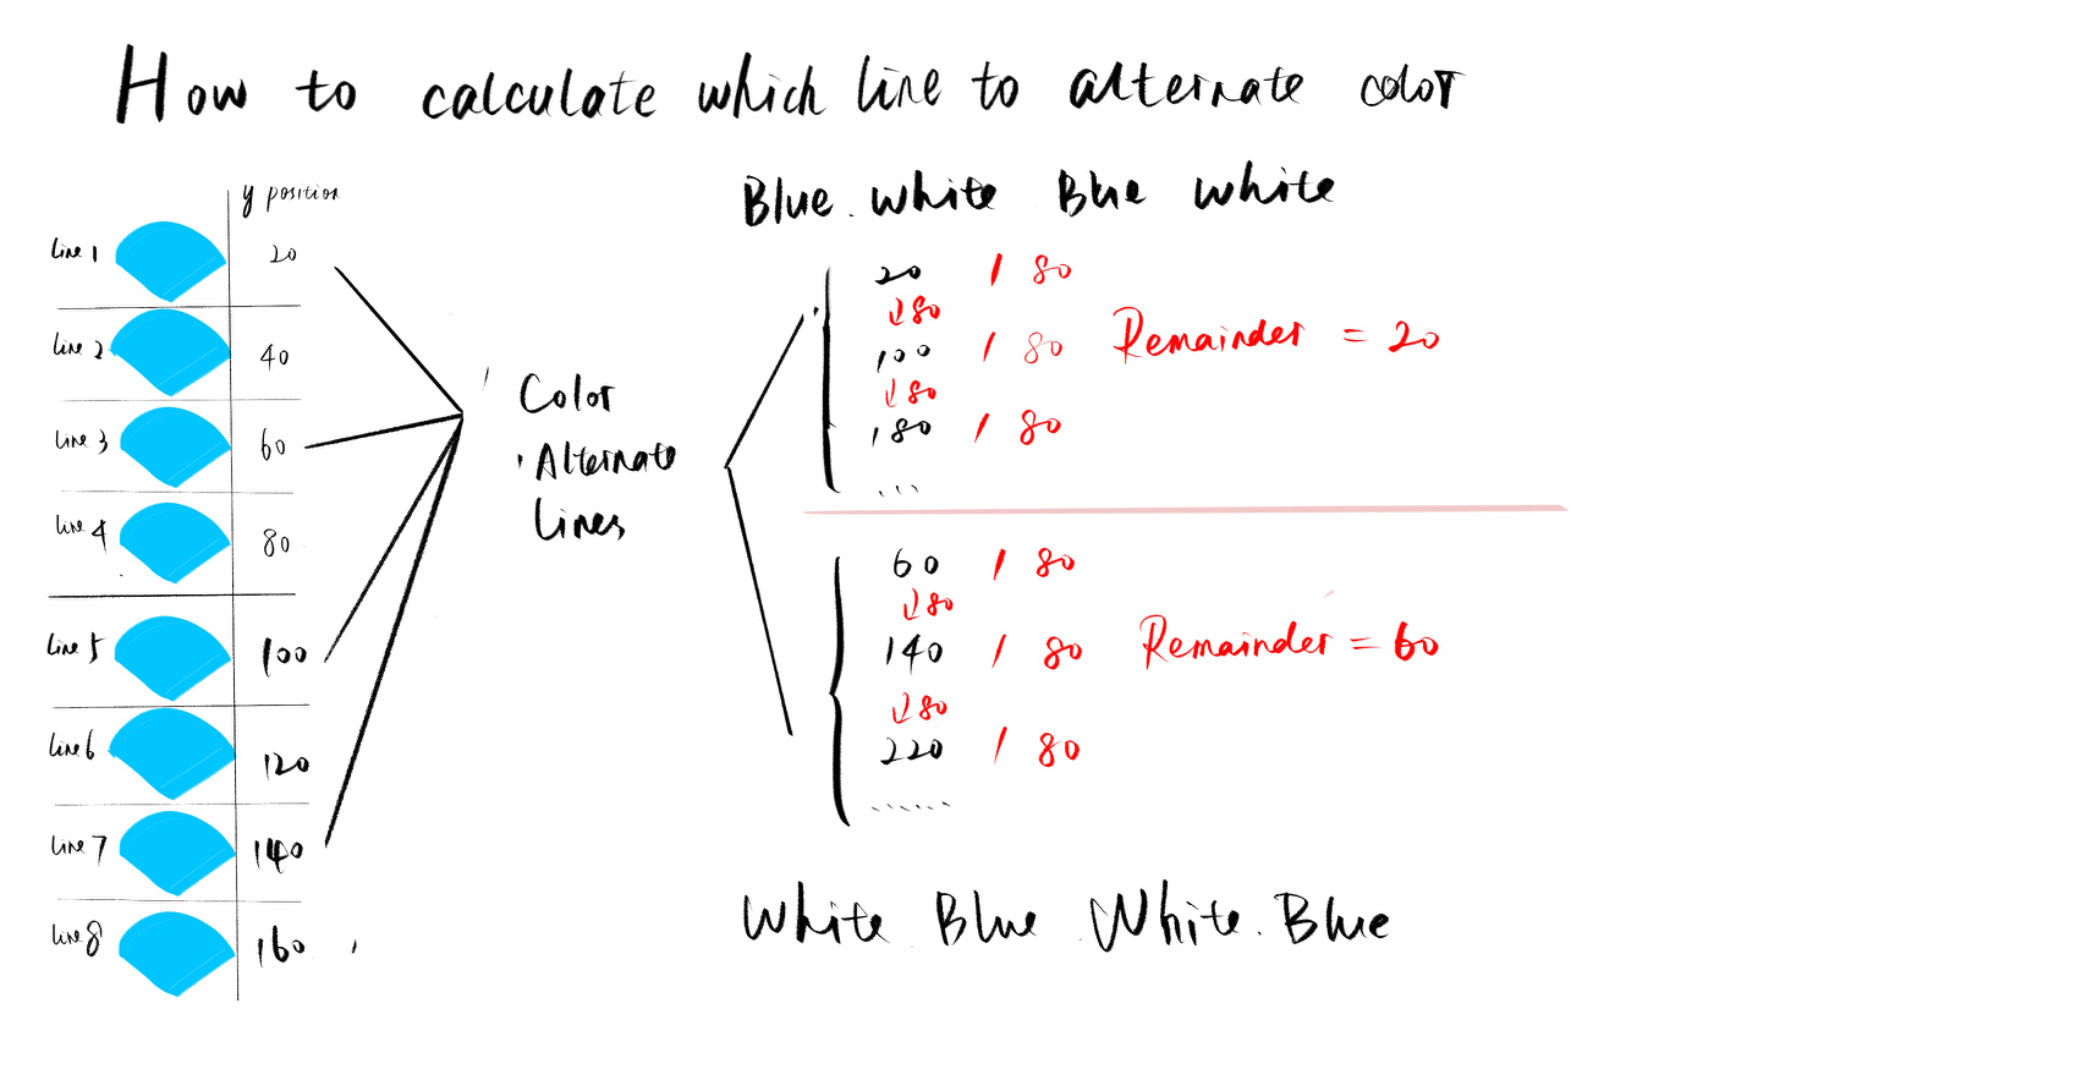 How to calculate which line to alternate color
y position
line 1 20
line 2 40
line 3 60
line 4 80
line 5 100
line 6 120
line 7 140
line 8 160
Color
Alternate
Lines
Blue. white Blue white
20 / 80
↓80
100 / 80 Remainder = 20
↓80
180 / 80
...
60 / 80
↓80
140 / 80 Remainder = 60
↓80
220 / 80
......
White Blue White. Blue